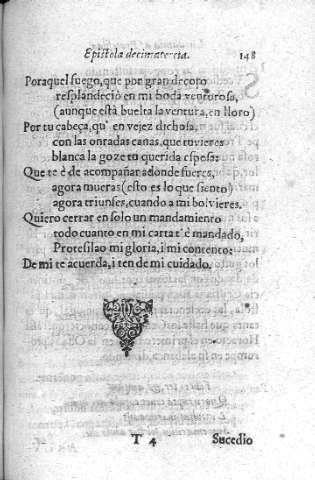 Epistola decimatercia. 148
Por aquel fuego, que por gran decoro
resplandeciò en mi boda venturosa,
(aunque està buelta la ventura, en lloro)
Por tu cabeça, qu' en vejez dichosa,
con las onradas canas, que tuvieres
blanca la goze tu querida esposa:
Que te è de acompañar adonde fueres,
agora mueras (esto es lo que siento)
agora triunfes, cuando a mi bolvieres.
Quiero cerrar en solo un mandamiento
todo cuanto en mi carta t' è mandado,
Protesilao mi gloria, i mi contento:
De mi te acuerda, i ten de mi cuidado.
T 4 Sucedio